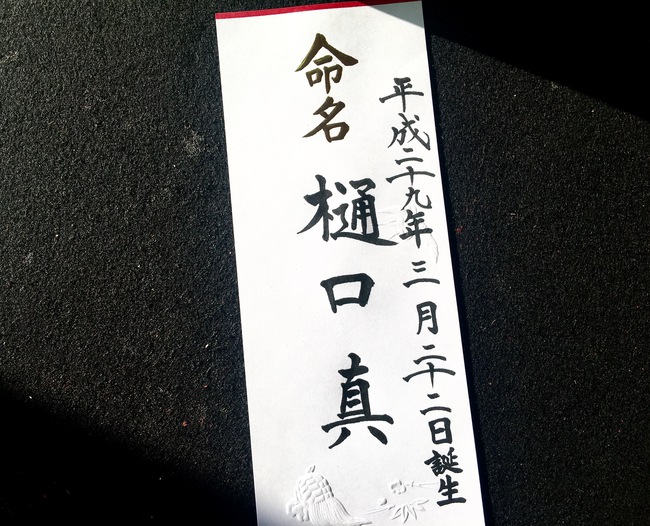 平成二十九年三月二十二日誕生
命名
樋口真